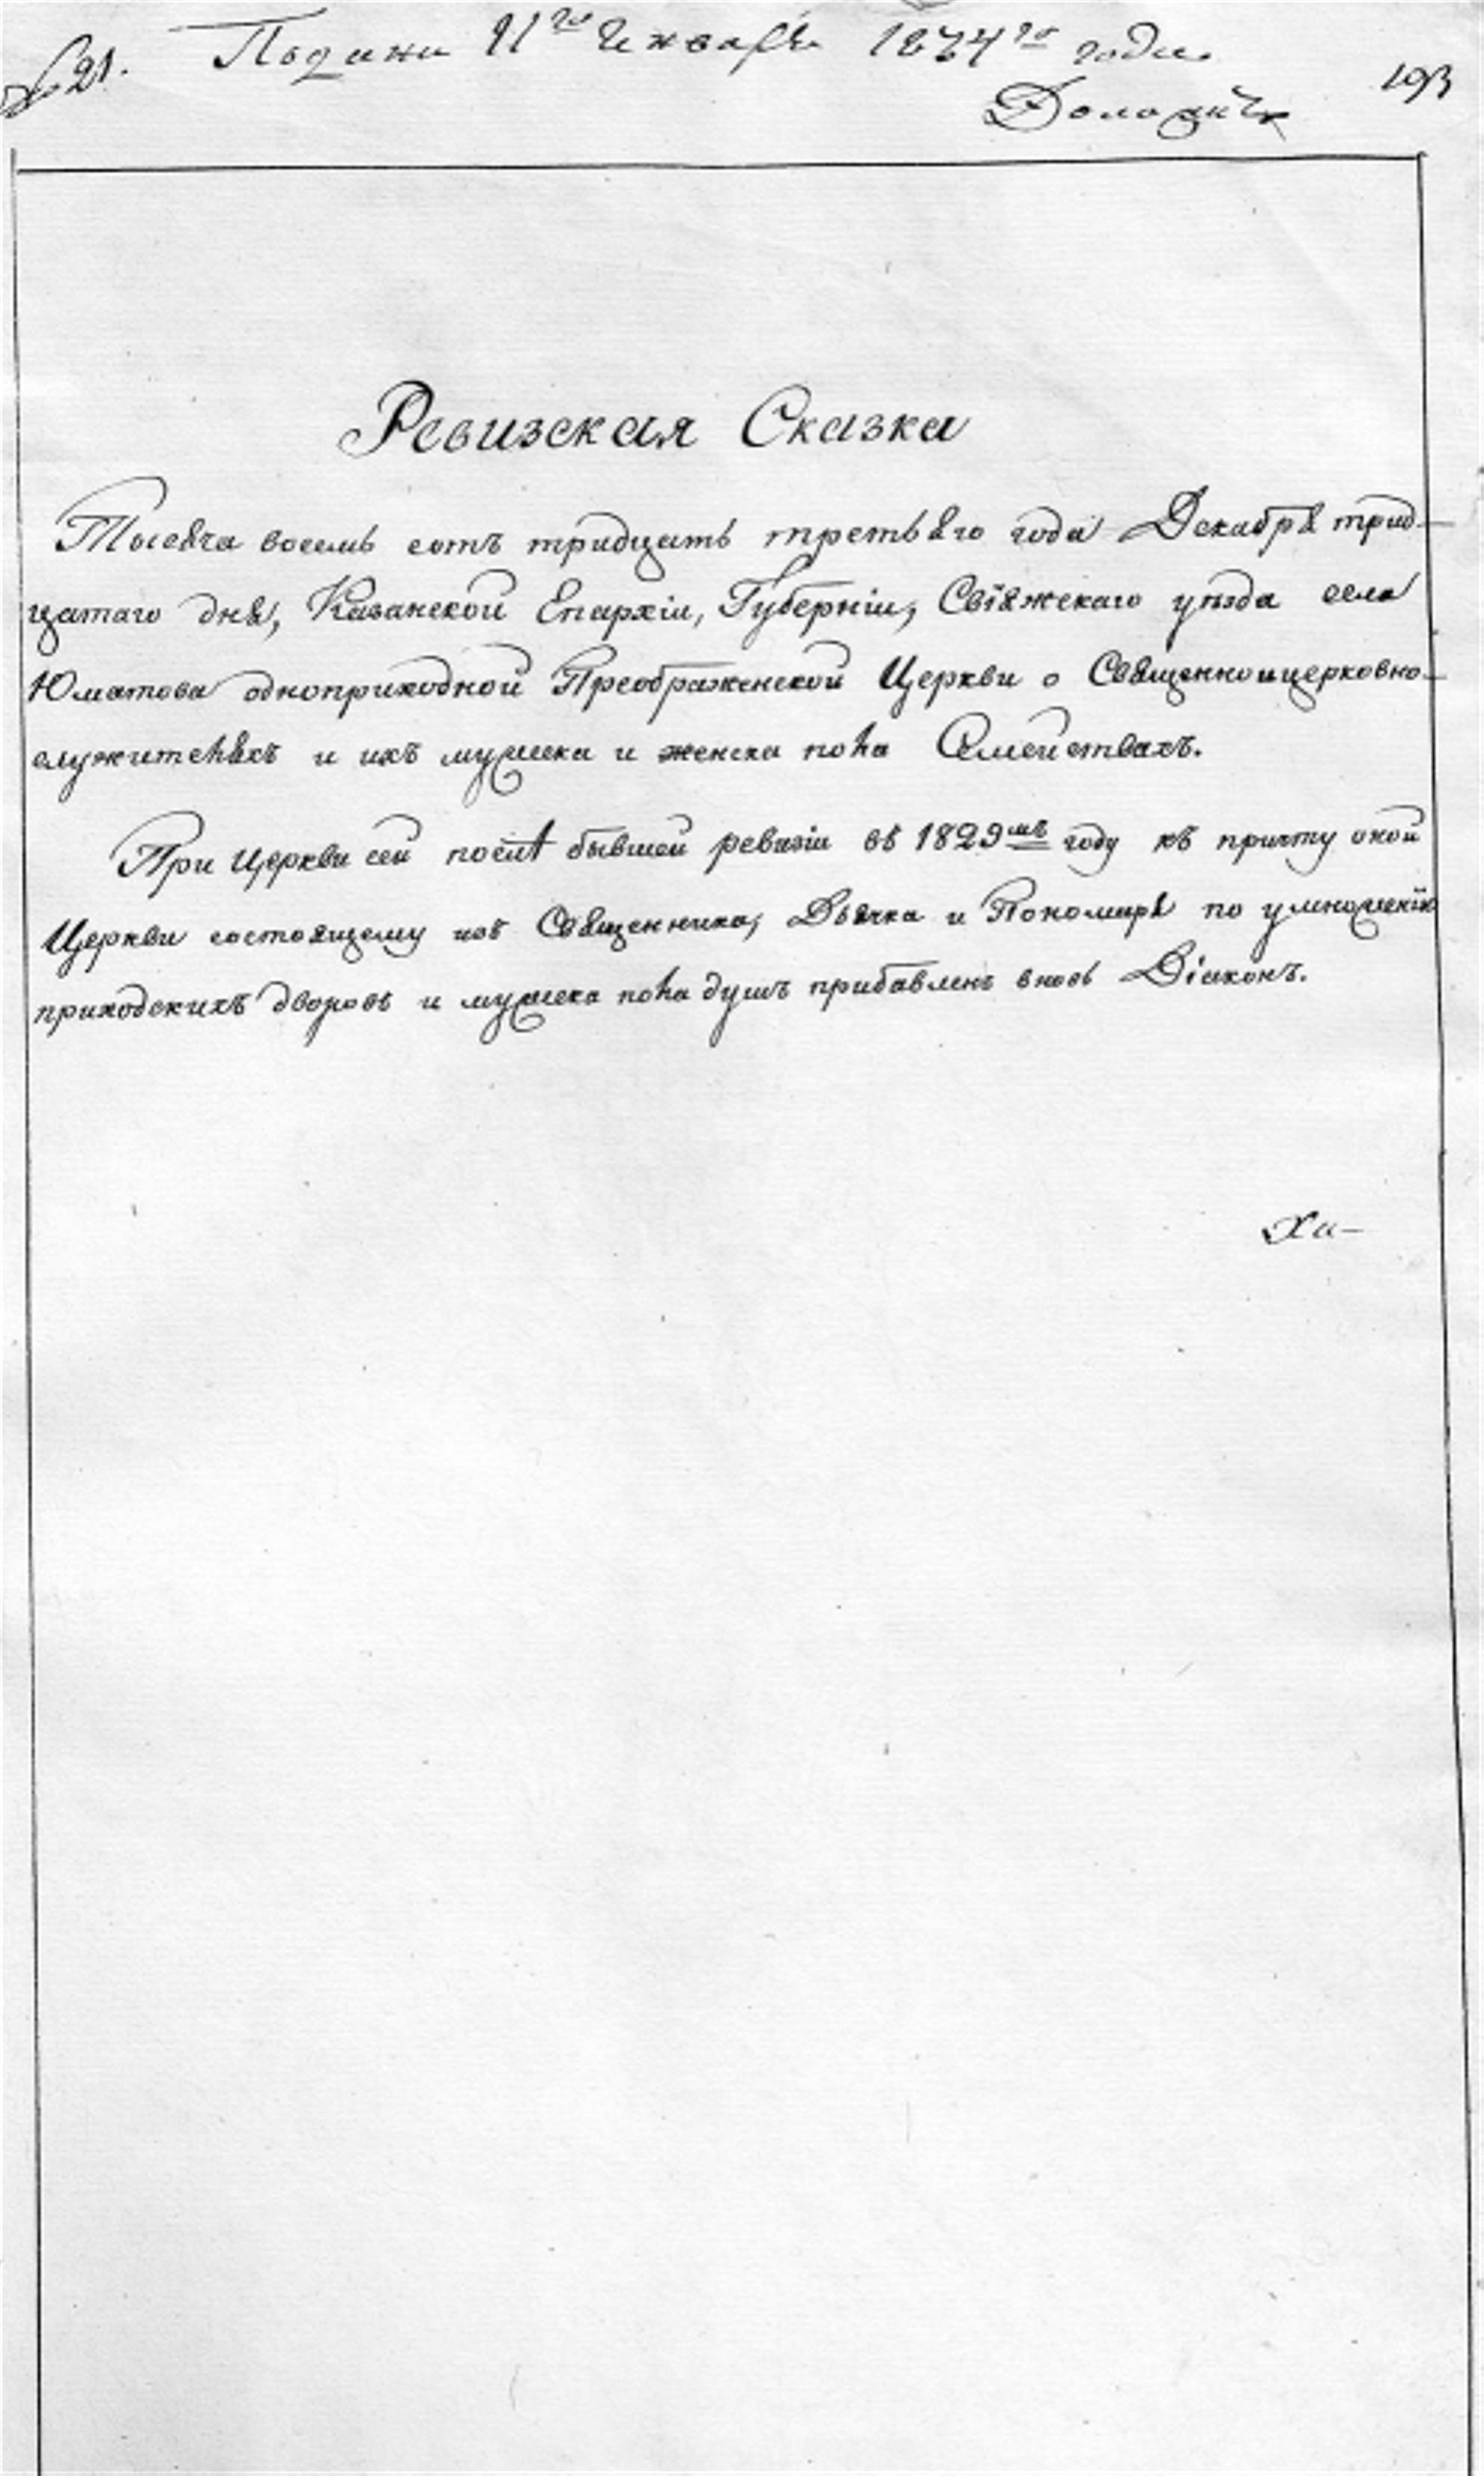 № 21. Подана 11го Января 1834го года
193
Ревизская Сказка
Тысяча восемь сотъ тридцать третьяго года Декабря трид-
цатаго дня, Казанской Епархіи, Губерніи, Свіяжскаго уѣзда села
Юматова одноприходной Преображенской Церкви о Священноицерковно-
служителяхъ и ихъ мужеска и женска пола Семействахъ.
При Церкви сей послѣ бывшей ревизіи въ 1829мъ году къ причту оной
Церкви состоящему изъ Священника, Дьячка и Пономаря по умноженію
приходскихъ дворовъ и мужеска пола душъ прибавленъ вновь Діаконъ.